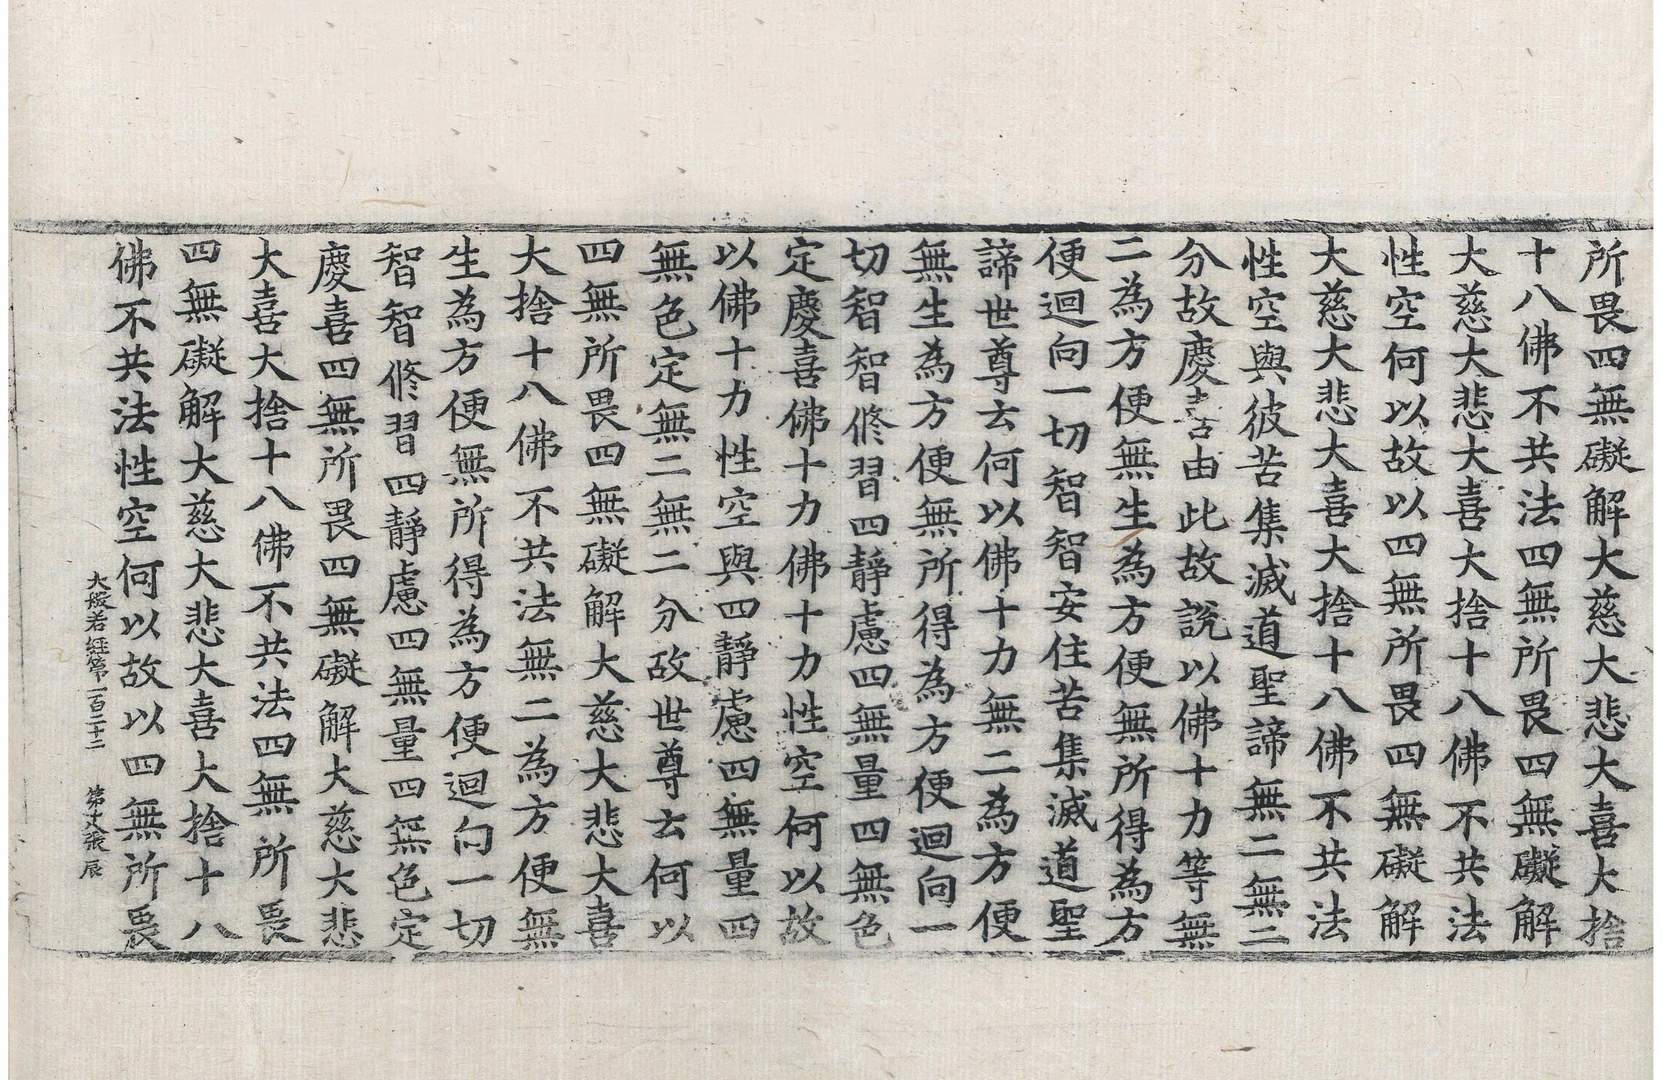 所畏四無礙解大慈大悲大喜大捨
十八佛不共法四無所畏四無礙解
大慈大悲大喜大捨十八佛不共法
性空何以故以四無所畏四無礙解
大慈大悲大喜大捨十八佛不共法
性空與彼苦集滅道聖諦無二無二
分故慶喜由此故說以佛十力等無
二為方便無生為方便無所得為方
便迴向一切智智安住苦集滅道聖
諦世尊云何以佛十力無二為方便
無生為方便無所得為方便迴向一
切智智修習四靜慮四無量四無色
定慶喜佛十力佛十力性空何以故
以佛十力性空與四靜慮四無量四
無色定無二無二分故世尊云何以
四無所畏四無礙解大慈大悲大喜
大捨十八佛不共法無二為方便無
生為方便無所得為方便迴向一切
智智修習四靜慮四無量四無色定
慶喜四無所畏四無礙解大慈大悲
大喜大捨十八佛不共法四無所畏
四無礙解大慈大悲大喜大捨十八
佛不共法性空何以故以四無所畏
大般若經第一百二十二 第十八張 辰